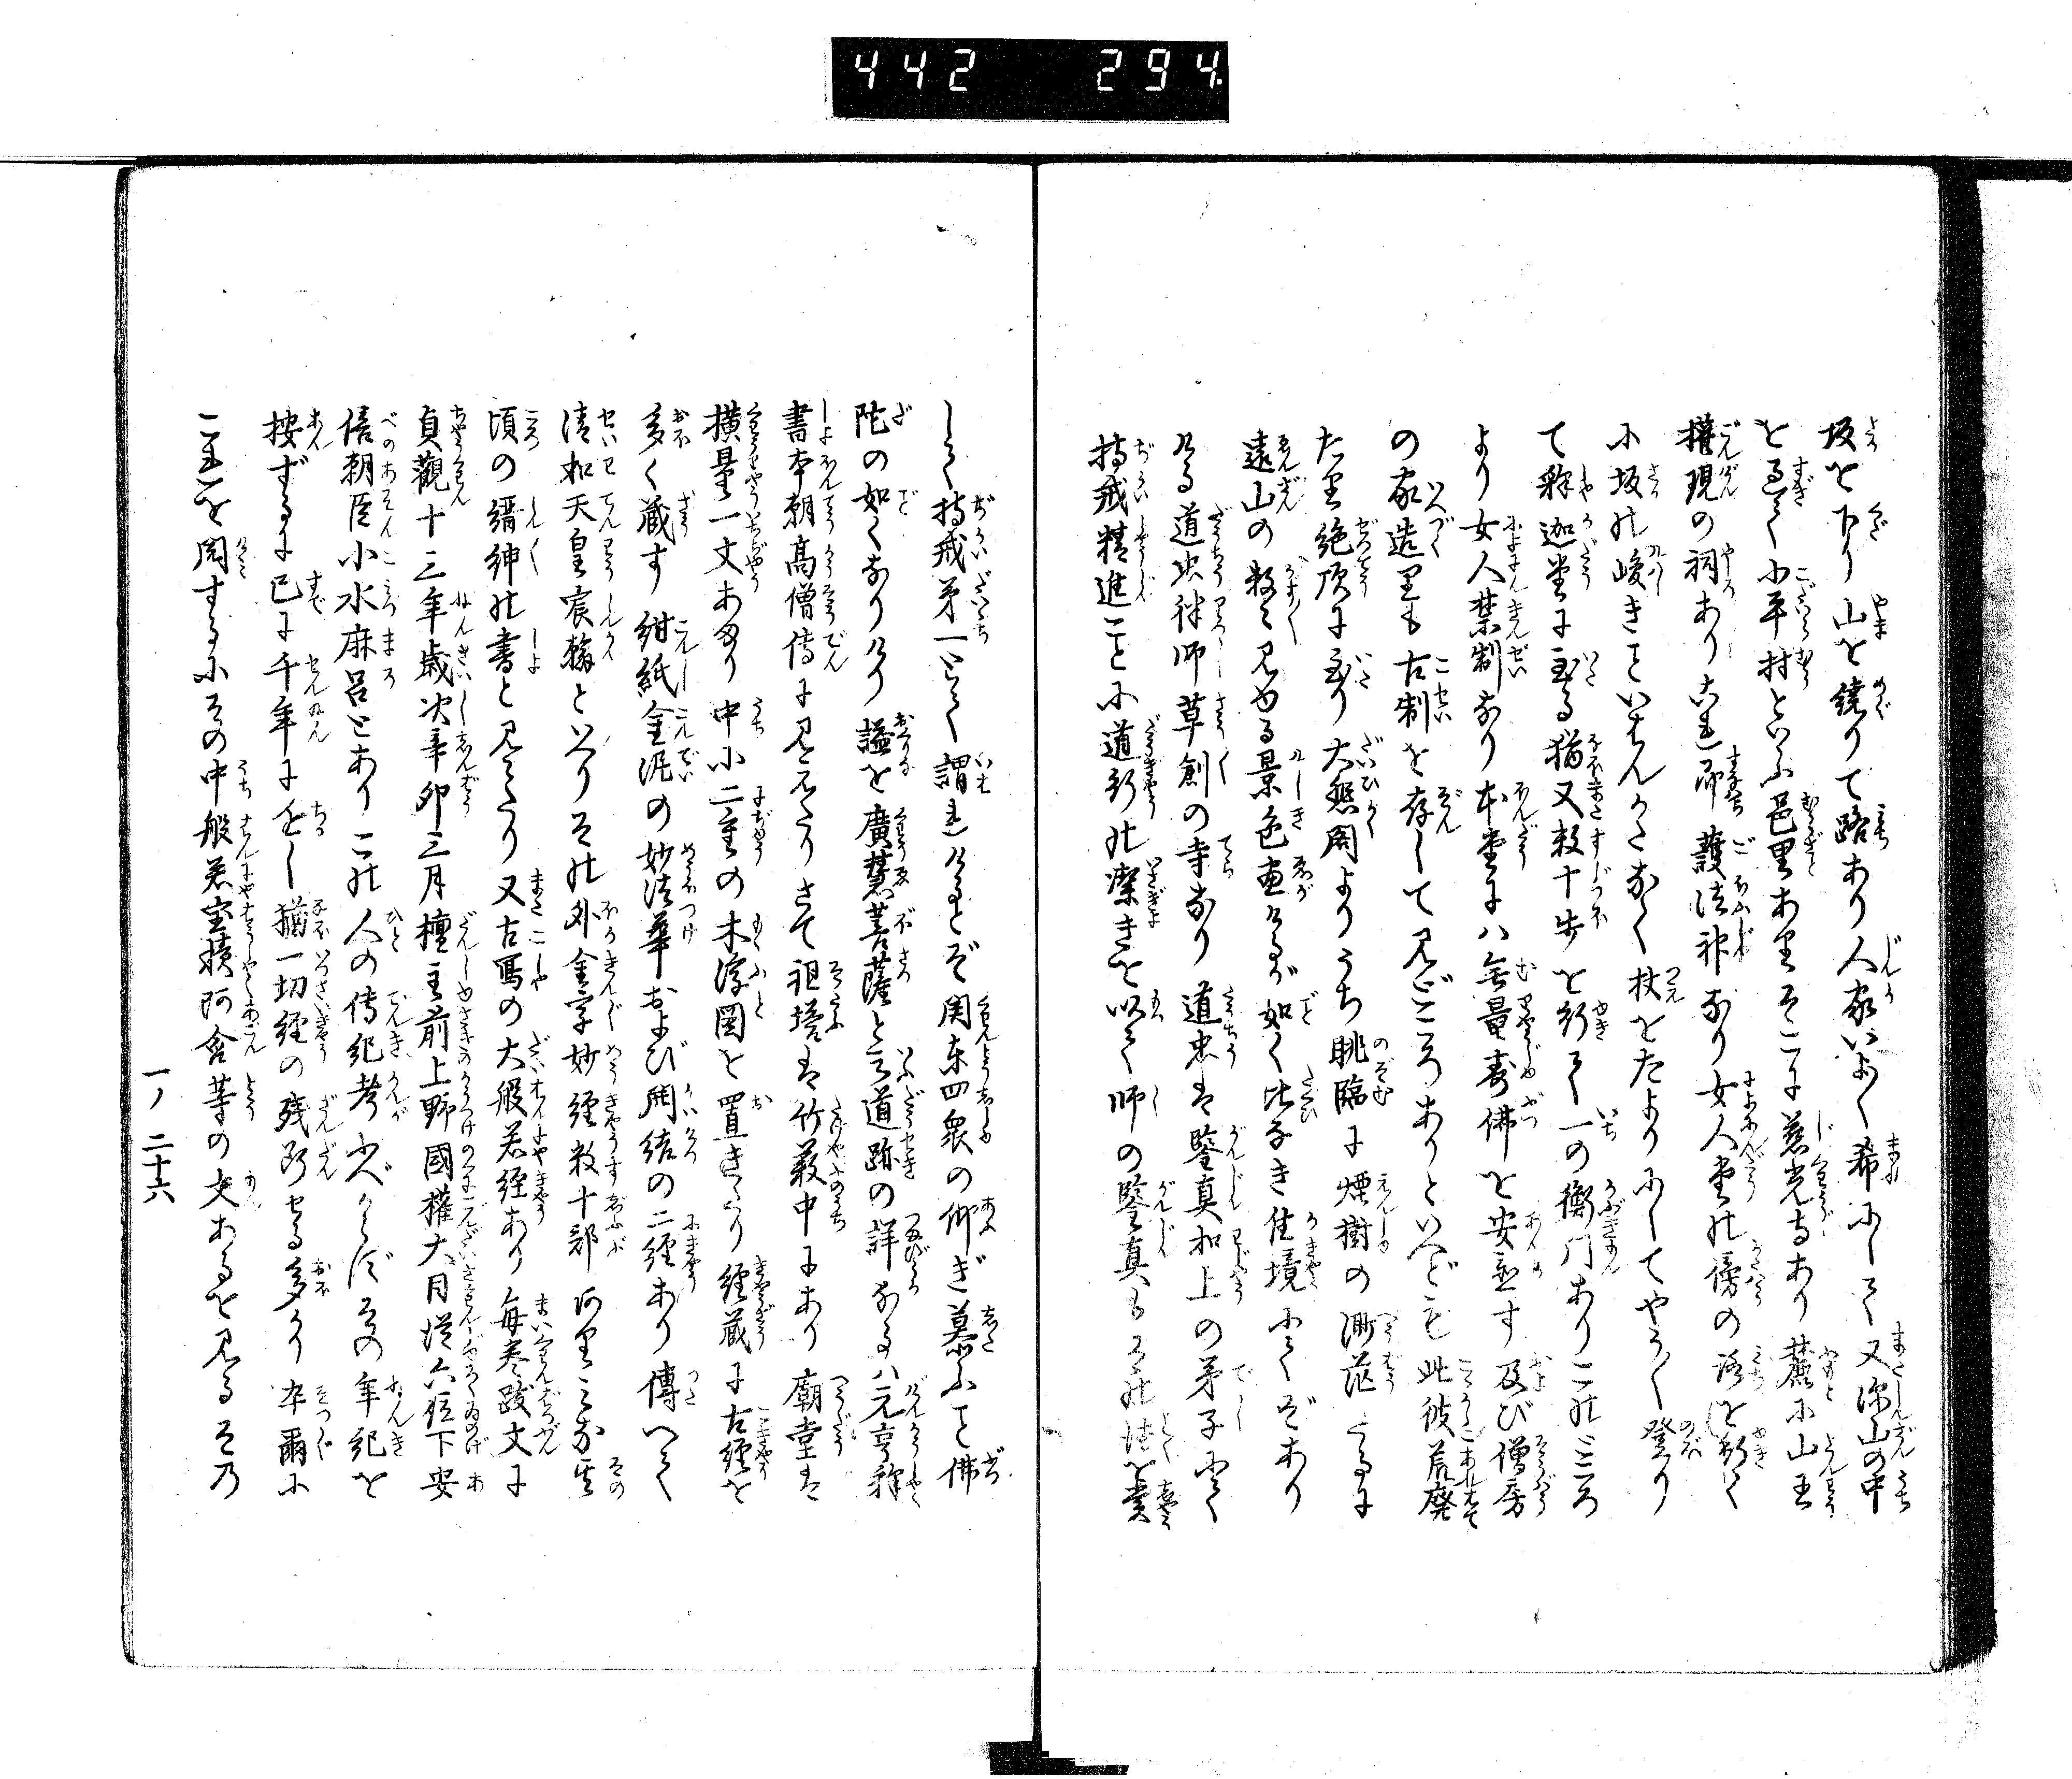 442 294.
坂を下り山を繞りて路あり人家いよ〱希にして又深山の中
を過て小平村といふ邑里あり爰に慈光寺あり麓に山王
権現の祠あり是則護法神なり女人堂の傍の路を行く
に坂の峻きこといはんかたなく杖をたよりにしてやう〱登り
て釋迦堂に至る猶又数十歩を行て一の衡門ありこのところ
より女人禁制なり本堂には無量壽佛を安置す及び僧房
の家造りも古制を存して見どころありといへども此彼荒廃
たり絶頂に至り大悲閣よりうち眺臨に煙樹の渺茫たるに
遠山の数々見ゆる景色画けるが如く比なき佳境にてぞあり
ける道忠禅師草創の寺なり道忠は鑒真和上の弟子にて
持戒精進ことに道行の潔きを以て師の鑒真もその徳を賞
して持戒第一とて謂れけるとぞ関東四衆の仰ぎ慕ふこと佛
陀の如くなりけり謚を廣慧菩薩と云道跡の詳なるは元亨釋
書本朝高僧傳に見えたりさて祖塔は竹藪中にあり廟堂は
横量一丈あまり中小二重の木浮圖を置きたり経蔵に古経を
多く蔵す紺紙金泥の妙法華および開結の二経あり傳へて
清和天皇宸翰といへりその外金字妙経数十部何れもみな其
頃の縉紳の書と見えたり又古寫の大般若経あり毎巻跋文に
貞觀十三年歳次辛卯三月檀主前上野國權大目従六位下安
倍朝臣小水麻呂とありこの人の傳紀考ふべからずその年紀を
按ずるに已に千年に近し猶一切経の残断せる多かり卒爾に
これを閲するにその中般若宝積阿含等の文あるを見るその
一ノ二十六